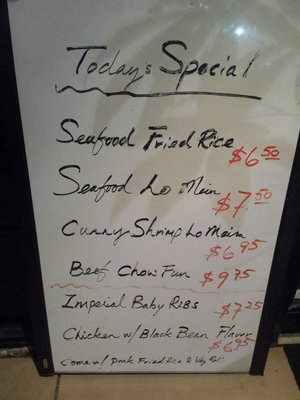 Today's Special
Seafood Fried Rice
$6.50
Seafood Lo Mein
$7.50
Curry Shrimp Lo Mein
$6.95
Beef Chow Fun
$9.75
Imperial Baby Ribs
$7.25
Chicken w/ Black Bean Flavor
$6.95
Come w/ Pork Fried Rice & Veg Roll